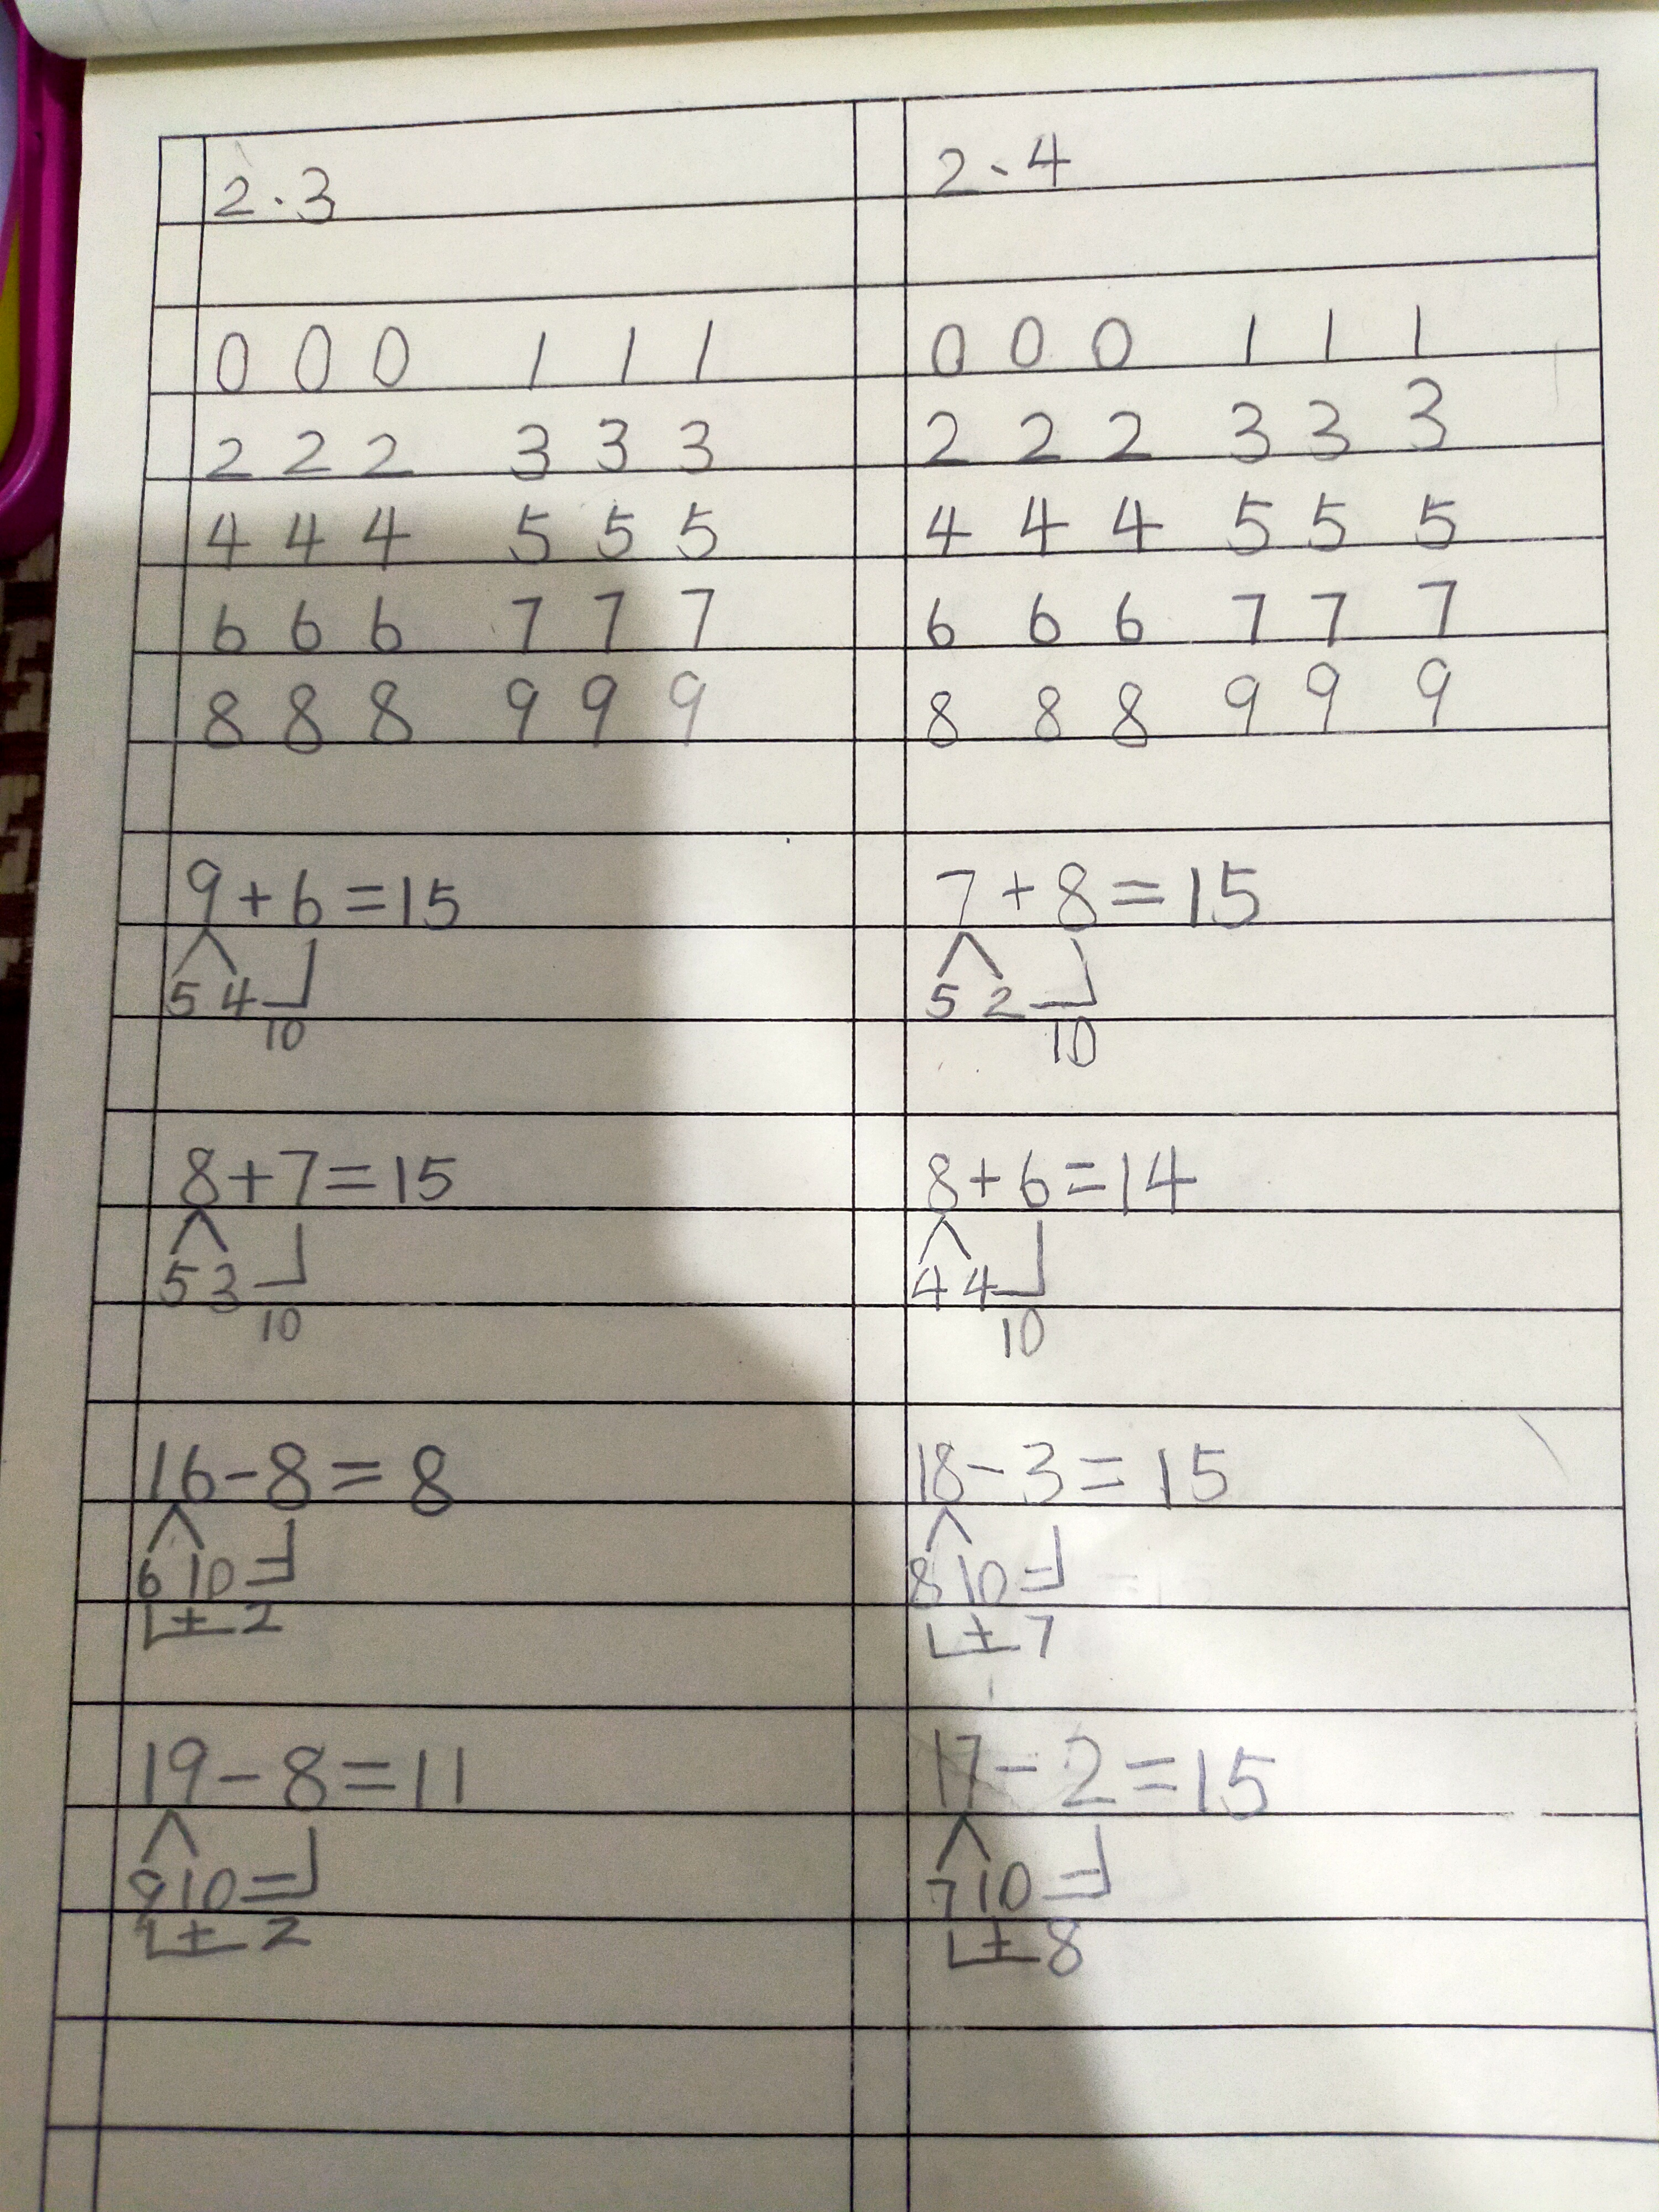 2.3
0 0 0 1 1 1
2 2 2 3 3 3
4 4 4 5 5 5
6 6 6 7 7 7
8 8 8 9 9 9
9+6=15
5 4
10
8+7=15
5 3
10
16-8=8
6 10 =
+ 2
19-8=11
9 10 =
+ 2
2.4
0 0 0 1 1 1
2 2 2 3 3 3
4 4 4 5 5 5
6 6 6 7 7 7
8 8 8 9 9 9
7+8=15
5 2
10
8+6=14
4 4
10
18-3=15
8 10 =
+ 7
17-2=15
7 10 =
+ 8